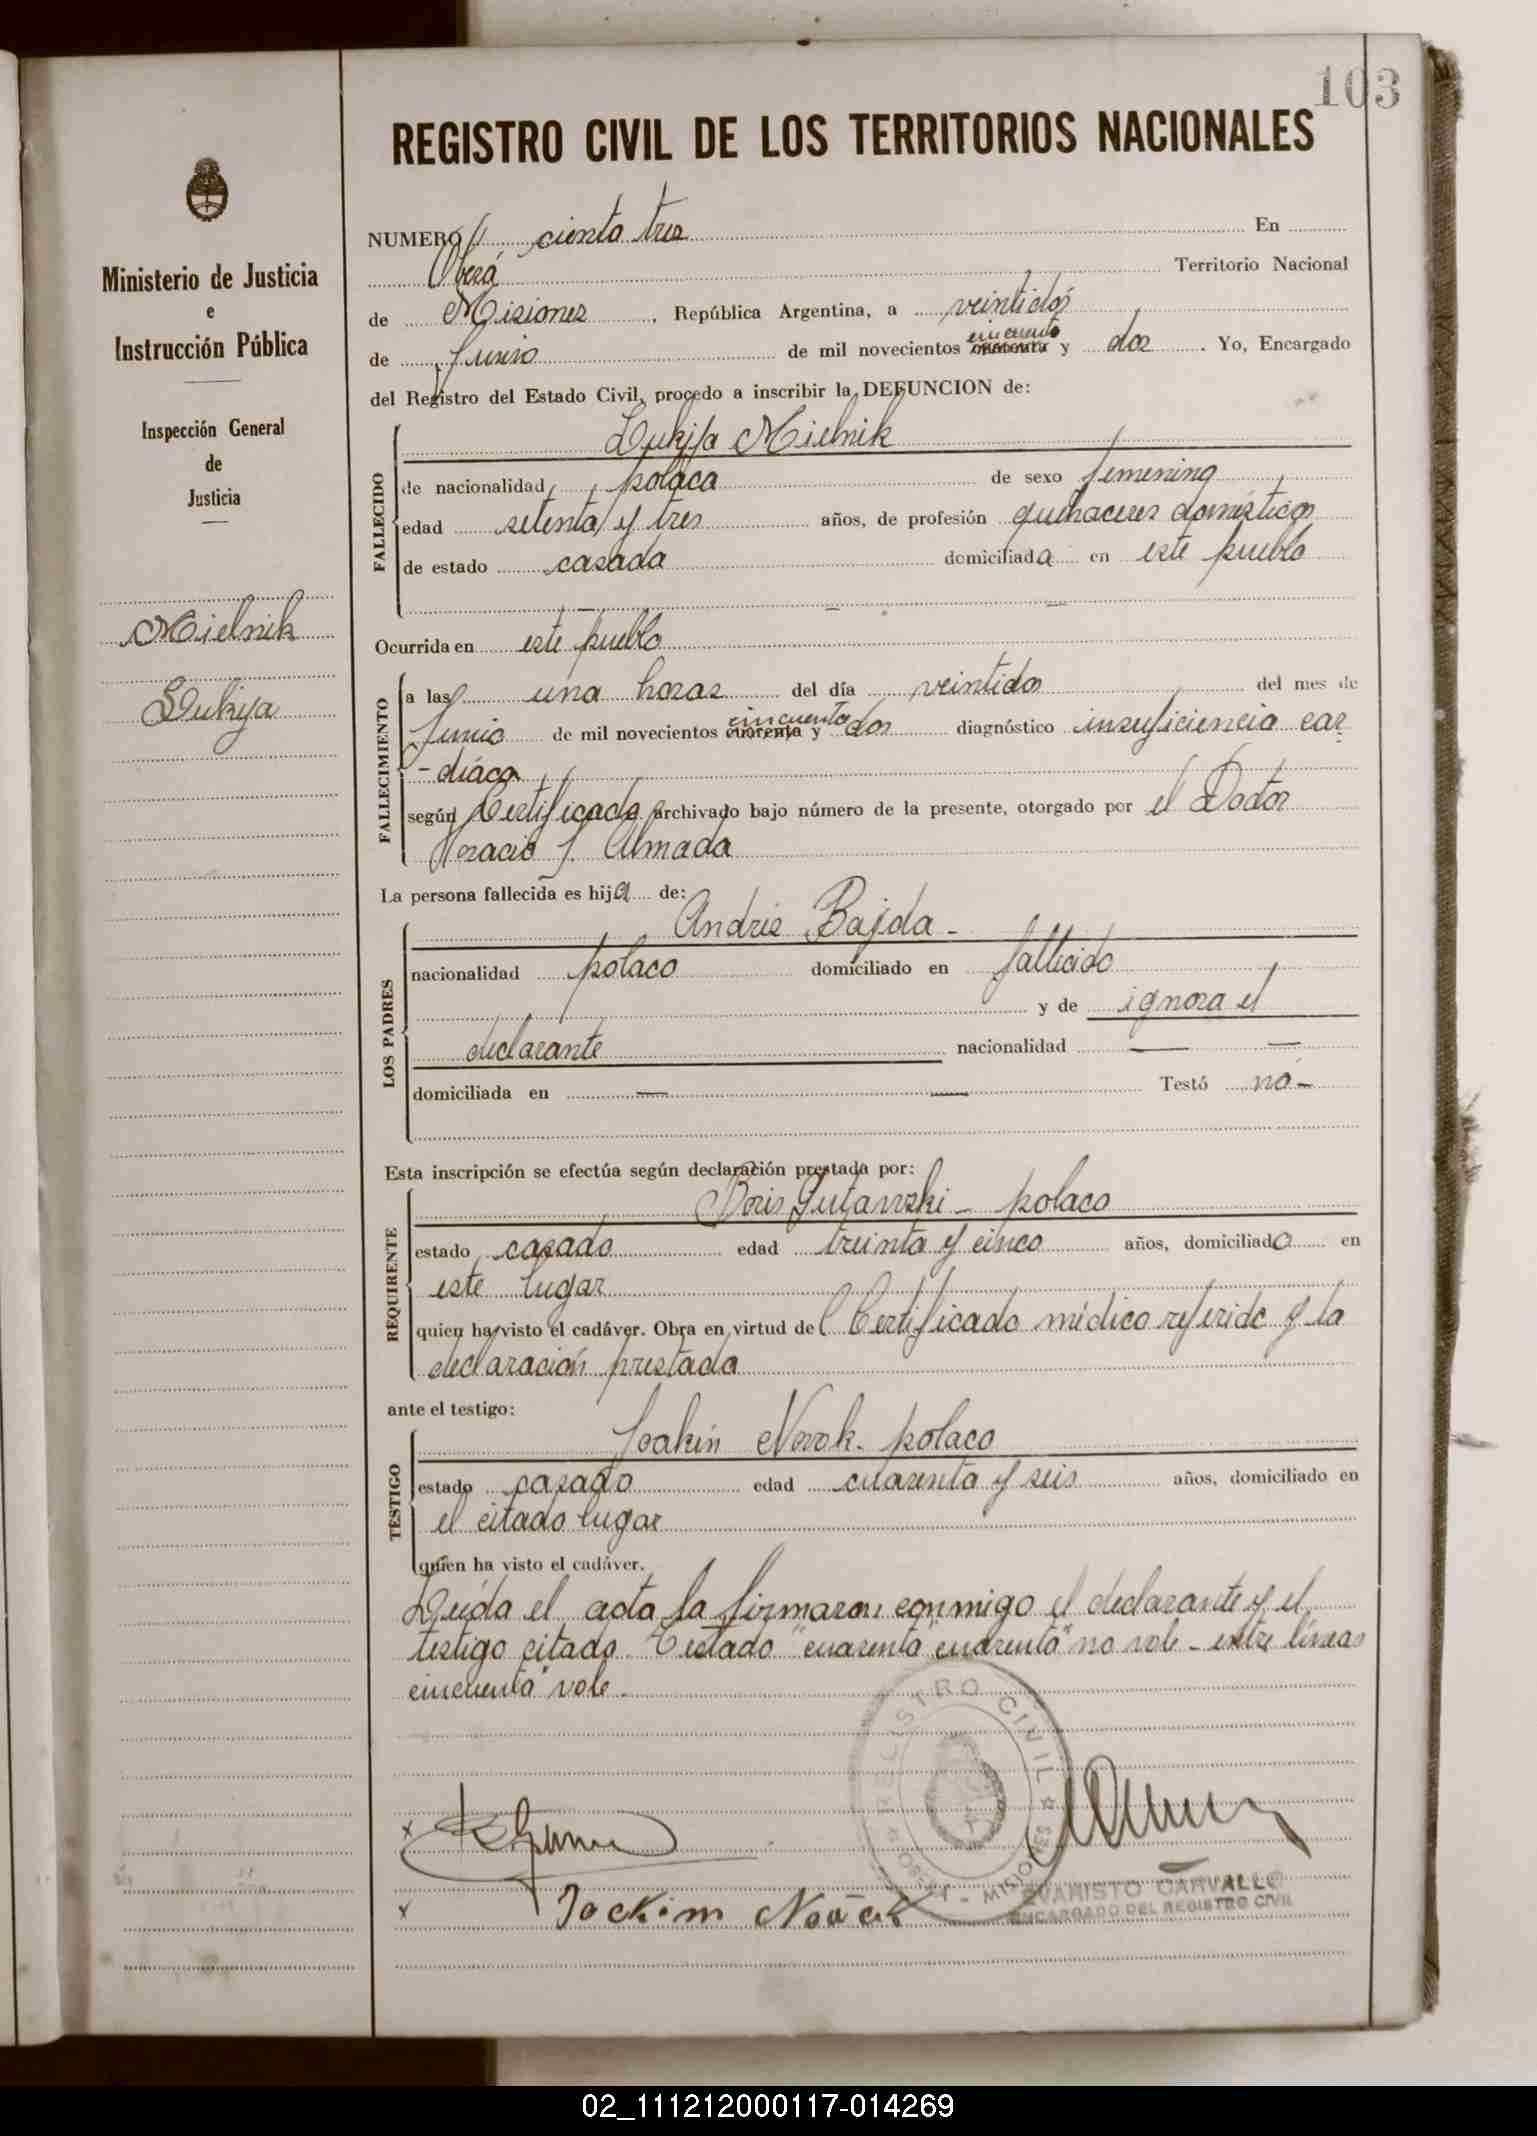 103
REGISTRO CIVIL DE LOS TERRITORIOS NACIONALES
Ministerio de Justicia
e
Instrucción Pública
Inspección General
de
Justicia
Mielnik
Lukija
NUMERO ciento tres En
Oberá Territorio Nacional
de Misiones, República Argentina, a veintidós
cincuenta
de Junio de mil novecientos cuarenta y dos. Yo, Encargado
del Registro del Estado Civil, procedo a inscribir la DEFUNCION de:
Lukija Mielnik
FALLECIDO
de nacionalidad polaca de sexo femenino
edad setenta y tres años, de profesión quehaceres domésticos
de estado casada domiciliada en este pueblo
Ocurrida en este pueblo
FALLECIMIENTO
a las una horas del día veintidos del mes de
cincuenta
Junio de mil novecientos cuarenta y dos diagnóstico insuficiencia car
-díaca
según Certificado archivado bajo número de la presente, otorgado por el Doctor
Horacio J. Almada
La persona fallecida es hija de:
LOS PADRES
Andres Bajda -
nacionalidad polaco domiciliado en fallecido
y de ignora el
declarante nacionalidad — —
domiciliada en — — Testó no-
Esta inscripción se efectúa según declaración prestada por:
REQUIRENTE
Boris - polaco
estado casado edad treinta y cinco años, domiciliado en
este lugar
quien ha visto el cadáver. Obra en virtud del Certificado médico referido y la
declaración prestada
ante el testigo:
TESTIGO
Joakin Novak - polaco
estado casado edad cuarenta y seis años, domiciliado en
el citado lugar
quien ha visto el cadáver.
Leída el acta la firmaron conmigo el declarante y el
testigo citado. Testado "cuarenta" cuarenta" no vale - entre líneas
cincuenta" vale.
REGISTRO CIVIL
OBERA - MISIONES
x
x Jockim
EVARISTO CARVALLO
ENCARGADO DEL REGISTRO CIVIL
02_111212000117-014269